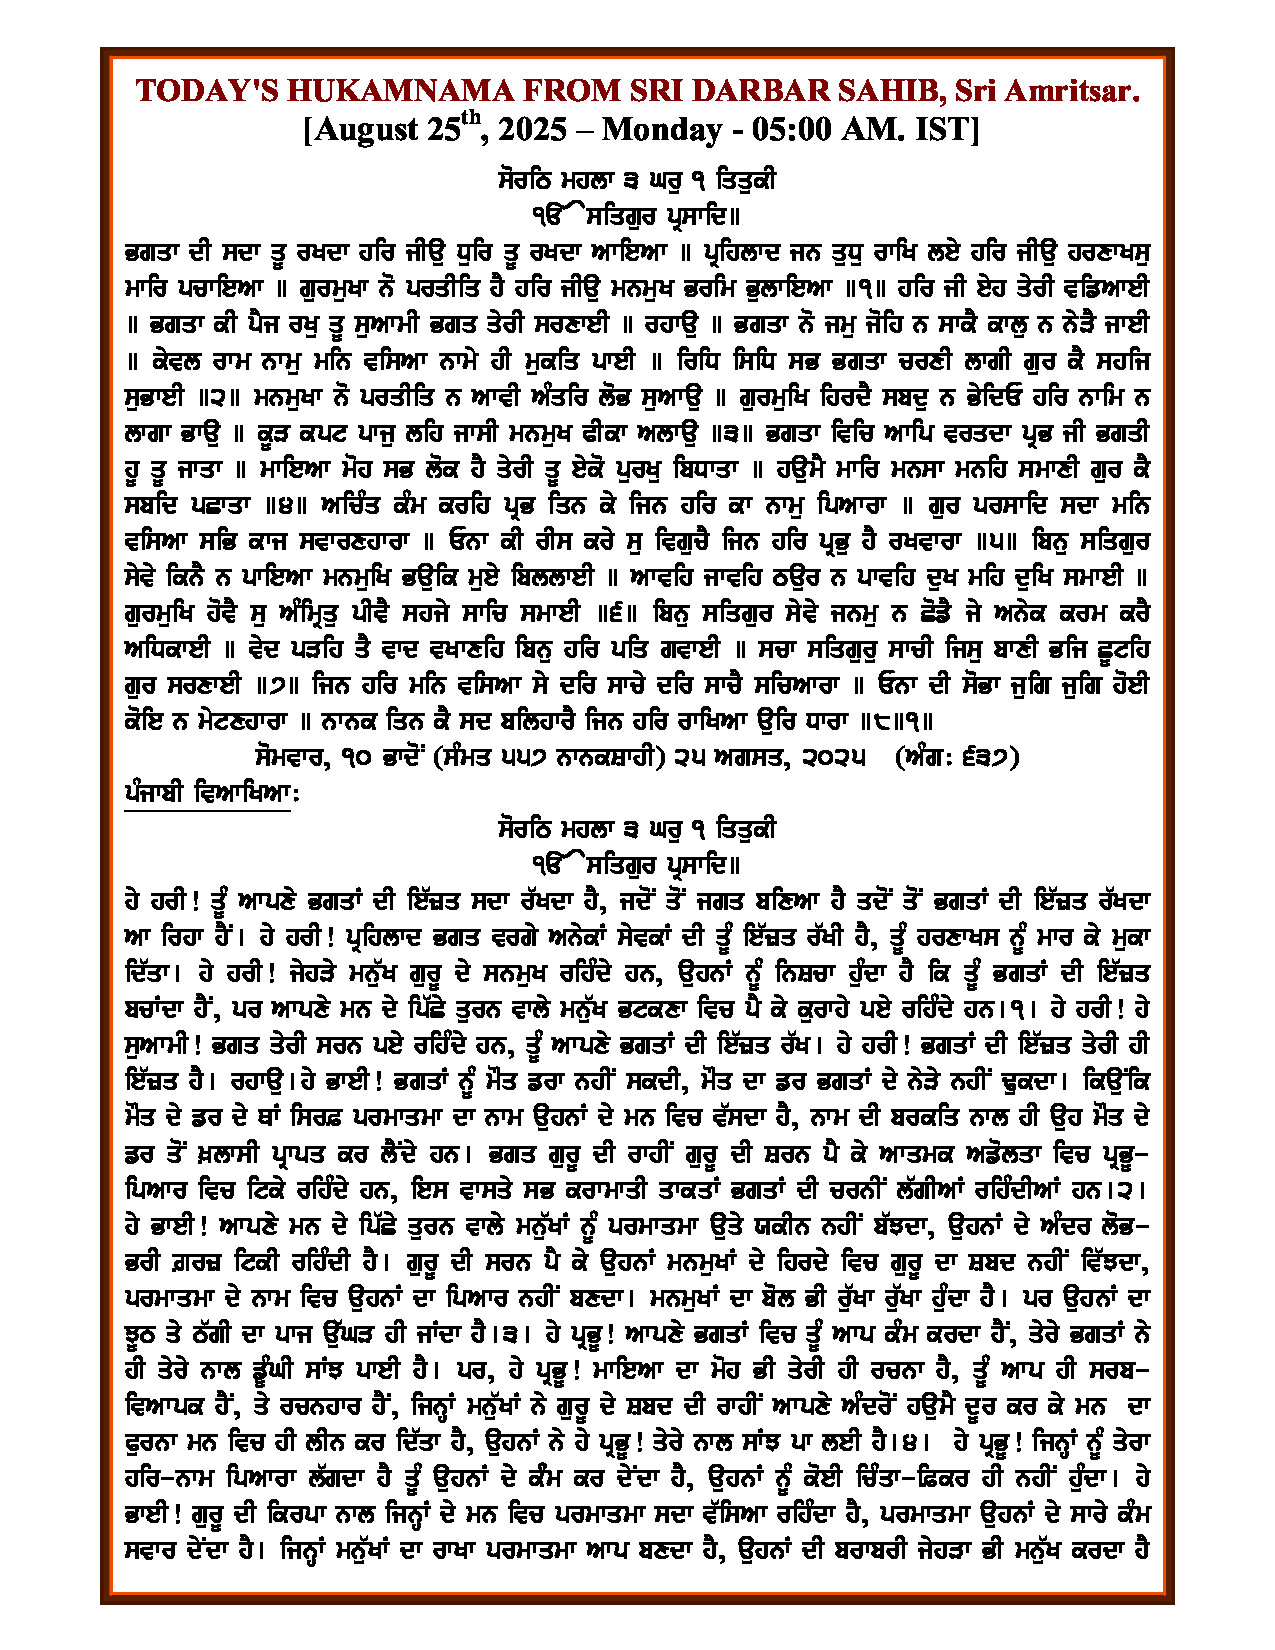 TODAY'S HUKAMNAMA FROM SRI DARBAR SAHIB, Sri Amritsar.
[August 25th, 2025 – Monday - 05:00 AM. IST]
ਸੋਰਠਿ ਮਹਲਾ ੩ ਘਰੁ ੧ ਤਿਤੁਕੀ
ੴ ਸਤਿਗੁਰ ਪ੍ਰਸਾਦਿ॥
ਭਗਤਾ ਦੀ ਸਦਾ ਤੂ ਰਖਦਾ ਹਰਿ ਜੀਉ ਧੁਰਿ ਤੂ ਰਖਦਾ ਆਇਆ ॥ ਪ੍ਰਹਿਲਾਦ ਜਨ ਤੁਧੁ ਰਾਖਿ ਲਏ ਹਰਿ ਜੀਉ ਹਰਣਾਖਸੁ
ਮਾਰਿ ਪਚਾਇਆ ॥ ਗੁਰਮੁਖਾ ਨੋ ਪਰਤੀਤਿ ਹੈ ਹਰਿ ਜੀਉ ਮਨਮੁਖ ਭਰਮਿ ਭੁਲਾਇਆ ॥੧॥ ਹਰਿ ਜੀ ਏਹ ਤੇਰੀ ਵਡਿਆਈ
॥ ਭਗਤਾ ਕੀ ਪੈਜ ਰਖੁ ਤੂ ਸੁਆਮੀ ਭਗਤ ਤੇਰੀ ਸਰਣਾਈ ॥ ਰਹਾਉ ॥ ਭਗਤਾ ਨੋ ਜਮੁ ਜੋਹਿ ਨ ਸਾਕੈ ਕਾਲੁ ਨ ਨੇੜੈ ਜਾਈ
॥ ਕੇਵਲ ਰਾਮ ਨਾਮੁ ਮਨਿ ਵਸਿਆ ਨਾਮੇ ਹੀ ਮੁਕਤਿ ਪਾਈ ॥ ਰਿਧਿ ਸਿਧਿ ਸਭ ਭਗਤਾ ਚਰਣੀ ਲਾਗੀ ਗੁਰ ਕੈ ਸਹਜਿ
ਸੁਭਾਈ ॥੨॥ ਮਨਮੁਖਾ ਨੋ ਪਰਤੀਤਿ ਨ ਆਵੀ ਅੰਤਰਿ ਲੋਭ ਸੁਆਉ ॥ ਗੁਰਮੁਖਿ ਹਿਰਦੈ ਸਬਦੁ ਨ ਭੇਦਿਓ ਹਰਿ ਨਾਮਿ ਨ
ਲਾਗਾ ਭਾਉ ॥ ਕੂੜ ਕਪਟ ਪਾਜੁ ਲਹਿ ਜਾਸੀ ਮਨਮੁਖ ਫੀਕਾ ਅਲਾਉ ॥੩॥ ਭਗਤਾ ਵਿਚਿ ਆਪਿ ਵਰਤਦਾ ਪ੍ਰਭ ਜੀ ਭਗਤੀ
ਹੂ ਤੂ ਜਾਤਾ ॥ ਮਾਇਆ ਮੋਹ ਸਭ ਲੋਕ ਹੈ ਤੇਰੀ ਤੂ ਏਕੋ ਪੁਰਖੁ ਬਿਧਾਤਾ ॥ ਹਉਮੈ ਮਾਰਿ ਮਨਸਾ ਮਨਹਿ ਸਮਾਣੀ ਗੁਰ ਕੈ
ਸਬਦਿ ਪਛਾਤਾ ॥੪॥ ਅਚਿੰਤ ਕੰਮ ਕਰਹਿ ਪ੍ਰਭ ਤਿਨ ਕੇ ਜਿਨ ਹਰਿ ਕਾ ਨਾਮੁ ਪਿਆਰਾ ॥ ਗੁਰ ਪਰਸਾਦਿ ਸਦਾ ਮਨਿ
ਵਸਿਆ ਸਭਿ ਕਾਜ ਸਵਾਰਣਹਾਰਾ ॥ ਓਨਾ ਕੀ ਰੀਸ ਕਰੇ ਸੁ ਵਿਗੁਚੈ ਜਿਨ ਹਰਿ ਪ੍ਰਭੁ ਹੈ ਰਖਵਾਰਾ ॥੫॥ ਬਿਨੁ ਸਤਿਗੁਰ
ਸੇਵੇ ਕਿਨੈ ਨ ਪਾਇਆ ਮਨਮੁਖਿ ਭਉਕਿ ਮੁਏ ਬਿਲਲਾਈ ॥ ਆਵਹਿ ਜਾਵਹਿ ਠਉਰ ਨ ਪਾਵਹਿ ਦੁਖ ਮਹਿ ਦੁਖਿ ਸਮਾਈ ॥
ਗੁਰਮੁਖਿ ਹੋਵੈ ਸੁ ਅੰਮ੍ਰਿਤੁ ਪੀਵੈ ਸਹਜੇ ਸਾਚਿ ਸਮਾਈ ॥੬॥ ਬਿਨੁ ਸਤਿਗੁਰ ਸੇਵੇ ਜਨਮੁ ਨ ਛੋਡੈ ਜੇ ਅਨੇਕ ਕਰਮ ਕਰੈ
ਅਧਿਕਾਈ ॥ ਵੇਦ ਪੜਹਿ ਤੈ ਵਾਦ ਵਖਾਣਹਿ ਬਿਨੁ ਹਰਿ ਪਤਿ ਗਵਾਈ ॥ ਸਚਾ ਸਤਿਗੁਰੁ ਸਾਚੀ ਜਿਸੁ ਬਾਣੀ ਭਜਿ ਛੂਟਹਿ
ਗੁਰ ਸਰਣਾਈ ॥੭॥ ਜਿਨ ਹਰਿ ਮਨਿ ਵਸਿਆ ਸੇ ਦਰਿ ਸਾਚੇ ਦਰਿ ਸਾਚੈ ਸਚਿਆਰਾ ॥ ਓਨਾ ਦੀ ਸੋਭਾ ਜੁਗਿ ਜੁਗਿ ਹੋਈ
ਕੋਇ ਨ ਮੇਟਣਹਾਰਾ ॥ ਨਾਨਕ ਤਿਨ ਕੈ ਸਦ ਬਲਿਹਾਰੈ ਜਿਨ ਹਰਿ ਰਾਖਿਆ ਉਰਿ ਧਾਰਾ ॥੮॥੧॥
ਸੋਮਵਾਰ, ੧੦ ਭਾਦੋਂ (ਸੰਮਤ ੫੫੭ ਨਾਨਕਸ਼ਾਹੀ) ੨੫ ਅਗਸਤ, ੨੦੨੫ (ਅੰਗ: ੬੩੭)
ਪੰਜਾਬੀ ਵਿਆਖਿਆ:
ਸੋਰਠਿ ਮਹਲਾ ੩ ਘਰੁ ੧ ਤਿਤੁਕੀ
ੴ ਸਤਿਗੁਰ ਪ੍ਰਸਾਦਿ॥
ਹੇ ਹਰੀ! ਤੂੰ ਆਪਣੇ ਭਗਤਾਂ ਦੀ ਇੱਜ਼ਤ ਸਦਾ ਰੱਖਦਾ ਹੈ, ਜਦੋਂ ਤੋਂ ਜਗਤ ਬਣਿਆ ਹੈ ਤਦੋਂ ਤੋਂ ਭਗਤਾਂ ਦੀ ਇੱਜ਼ਤ ਰੱਖਦਾ
ਆ ਰਿਹਾ ਹੈਂ। ਹੇ ਹਰੀ! ਪ੍ਰਹਿਲਾਦ ਭਗਤ ਵਰਗੇ ਅਨੇਕਾਂ ਸੇਵਕਾਂ ਦੀ ਤੂੰ ਇੱਜ਼ਤ ਰੱਖੀ ਹੈ, ਤੂੰ ਹਰਣਾਖਸ ਨੂੰ ਮਾਰ ਕੇ ਮੁਕਾ
ਦਿੱਤਾ। ਹੇ ਹਰੀ! ਜੇਹੜੇ ਮਨੁੱਖ ਗੁਰੂ ਦੇ ਸਨਮੁਖ ਰਹਿੰਦੇ ਹਨ, ਉਹਨਾਂ ਨੂੰ ਨਿਸ਼ਚਾ ਹੁੰਦਾ ਹੈ ਕਿ ਤੂੰ ਭਗਤਾਂ ਦੀ ਇੱਜ਼ਤ
ਬਚਾਂਦਾ ਹੈਂ, ਪਰ ਆਪਣੇ ਮਨ ਦੇ ਪਿੱਛੇ ਤੁਰਨ ਵਾਲੇ ਮਨੁੱਖ ਭਟਕਣਾ ਵਿਚ ਪੈ ਕੇ ਕੁਰਾਹੇ ਪਏ ਰਹਿੰਦੇ ਹਨ।੧। ਹੇ ਹਰੀ! ਹੇ
ਸੁਆਮੀ! ਭਗਤ ਤੇਰੀ ਸਰਨ ਪਏ ਰਹਿੰਦੇ ਹਨ, ਤੂੰ ਆਪਣੇ ਭਗਤਾਂ ਦੀ ਇੱਜ਼ਤ ਰੱਖ। ਹੇ ਹਰੀ! ਭਗਤਾਂ ਦੀ ਇੱਜ਼ਤ ਤੇਰੀ ਹੀ
ਇੱਜ਼ਤ ਹੈ। ਰਹਾਉ।ਹੇ ਭਾਈ! ਭਗਤਾਂ ਨੂੰ ਮੌਤ ਡਰਾ ਨਹੀਂ ਸਕਦੀ, ਮੌਤ ਦਾ ਡਰ ਭਗਤਾਂ ਦੇ ਨੇੜੇ ਨਹੀਂ ਢੁਕਦਾ। ਕਿਉਂਕਿ
ਮੌਤ ਦੇ ਡਰ ਦੇ ਥਾਂ ਸਿਰਫ਼ ਪਰਮਾਤਮਾ ਦਾ ਨਾਮ ਉਹਨਾਂ ਦੇ ਮਨ ਵਿਚ ਵੱਸਦਾ ਹੈ, ਨਾਮ ਦੀ ਬਰਕਤਿ ਨਾਲ ਹੀ ਉਹ ਮੌਤ ਦੇ
ਡਰ ਤੋਂ ਖ਼ਲਾਸੀ ਪ੍ਰਾਪਤ ਕਰ ਲੈਂਦੇ ਹਨ। ਭਗਤ ਗੁਰੂ ਦੀ ਰਾਹੀਂ ਗੁਰੂ ਦੀ ਸ਼ਰਨ ਪੈ ਕੇ ਆਤਮਕ ਅਡੋਲਤਾ ਵਿਚ ਪ੍ਰਭੂ-
ਪਿਆਰ ਵਿਚ ਟਿਕੇ ਰਹਿੰਦੇ ਹਨ, ਇਸ ਵਾਸਤੇ ਸਭ ਕਰਾਮਾਤੀ ਤਾਕਤਾਂ ਭਗਤਾਂ ਦੀ ਚਰਨੀਂ ਲੱਗੀਆਂ ਰਹਿੰਦੀਆਂ ਹਨ।੨।
ਹੇ ਭਾਈ! ਆਪਣੇ ਮਨ ਦੇ ਪਿੱਛੇ ਤੁਰਨ ਵਾਲੇ ਮਨੁੱਖਾਂ ਨੂੰ ਪਰਮਾਤਮਾ ਉਤੇ ਯਕੀਨ ਨਹੀਂ ਬੱਝਦਾ, ਉਹਨਾਂ ਦੇ ਅੰਦਰ ਲੋਭ-
ਭਰੀ ਗ਼ਰਜ਼ ਟਿਕੀ ਰਹਿੰਦੀ ਹੈ। ਗੁਰੂ ਦੀ ਸਰਨ ਪੈ ਕੇ ਉਹਨਾਂ ਮਨਮੁਖਾਂ ਦੇ ਹਿਰਦੇ ਵਿਚ ਗੁਰੂ ਦਾ ਸ਼ਬਦ ਨਹੀਂ ਵਿੱਝਦਾ,
ਪਰਮਾਤਮਾ ਦੇ ਨਾਮ ਵਿਚ ਉਹਨਾਂ ਦਾ ਪਿਆਰ ਨਹੀਂ ਬਣਦਾ। ਮਨਮੁਖਾਂ ਦਾ ਬੋਲ ਭੀ ਰੁੱਖਾ ਰੁੱਖਾ ਹੁੰਦਾ ਹੈ। ਪਰ ਉਹਨਾਂ ਦਾ
ਝੂਠ ਤੇ ਠੱਗੀ ਦਾ ਪਾਜ ਉੱਘੜ ਹੀ ਜਾਂਦਾ ਹੈ।੩। ਹੇ ਪ੍ਰਭੂ! ਆਪਣੇ ਭਗਤਾਂ ਵਿਚ ਤੂੰ ਆਪ ਕੰਮ ਕਰਦਾ ਹੈਂ, ਤੇਰੇ ਭਗਤਾਂ ਨੇ
ਹੀ ਤੇਰੇ ਨਾਲ ਡੂੰਘੀ ਸਾਂਝ ਪਾਈ ਹੈ। ਪਰ, ਹੇ ਪ੍ਰਭੂ! ਮਾਇਆ ਦਾ ਮੋਹ ਭੀ ਤੇਰੀ ਹੀ ਰਚਨਾ ਹੈ, ਤੂੰ ਆਪ ਹੀ ਸਰਬ-
ਵਿਆਪਕ ਹੈਂ, ਤੇ ਰਚਨਹਾਰ ਹੈਂ, ਜਿਨ੍ਹਾਂ ਮਨੁੱਖਾਂ ਨੇ ਗੁਰੂ ਦੇ ਸ਼ਬਦ ਦੀ ਰਾਹੀਂ ਆਪਣੇ ਅੰਦਰੋਂ ਹਉਮੈ ਦੂਰ ਕਰ ਕੇ ਮਨ ਦਾ
ਫੁਰਨਾ ਮਨ ਵਿਚ ਹੀ ਲੀਨ ਕਰ ਦਿੱਤਾ ਹੈ, ਉਹਨਾਂ ਨੇ ਹੇ ਪ੍ਰਭੂ! ਤੇਰੇ ਨਾਲ ਸਾਂਝ ਪਾ ਲਈ ਹੈ।੪। ਹੇ ਪ੍ਰਭੂ! ਜਿਨ੍ਹਾਂ ਨੂੰ ਤੇਰਾ
ਹਰਿ-ਨਾਮ ਪਿਆਰਾ ਲੱਗਦਾ ਹੈ ਤੂੰ ਉਹਨਾਂ ਦੇ ਕੰਮ ਕਰ ਦੇਂਦਾ ਹੈ, ਉਹਨਾਂ ਨੂੰ ਕੋਈ ਚਿੰਤਾ-ਫ਼ਿਕਰ ਹੀ ਨਹੀਂ ਹੁੰਦਾ। ਹੇ
ਭਾਈ! ਗੁਰੂ ਦੀ ਕਿਰਪਾ ਨਾਲ ਜਿਨ੍ਹਾਂ ਦੇ ਮਨ ਵਿਚ ਪਰਮਾਤਮਾ ਸਦਾ ਵੱਸਿਆ ਰਹਿੰਦਾ ਹੈ, ਪਰਮਾਤਮਾ ਉਹਨਾਂ ਦੇ ਸਾਰੇ ਕੰਮ
ਸਵਾਰ ਦੇਂਦਾ ਹੈ। ਜਿਨ੍ਹਾਂ ਮਨੁੱਖਾਂ ਦਾ ਰਾਖਾ ਪਰਮਾਤਮਾ ਆਪ ਬਣਦਾ ਹੈ, ਉਹਨਾਂ ਦੀ ਬਰਾਬਰੀ ਜੇਹੜਾ ਭੀ ਮਨੁੱਖ ਕਰਦਾ ਹੈ